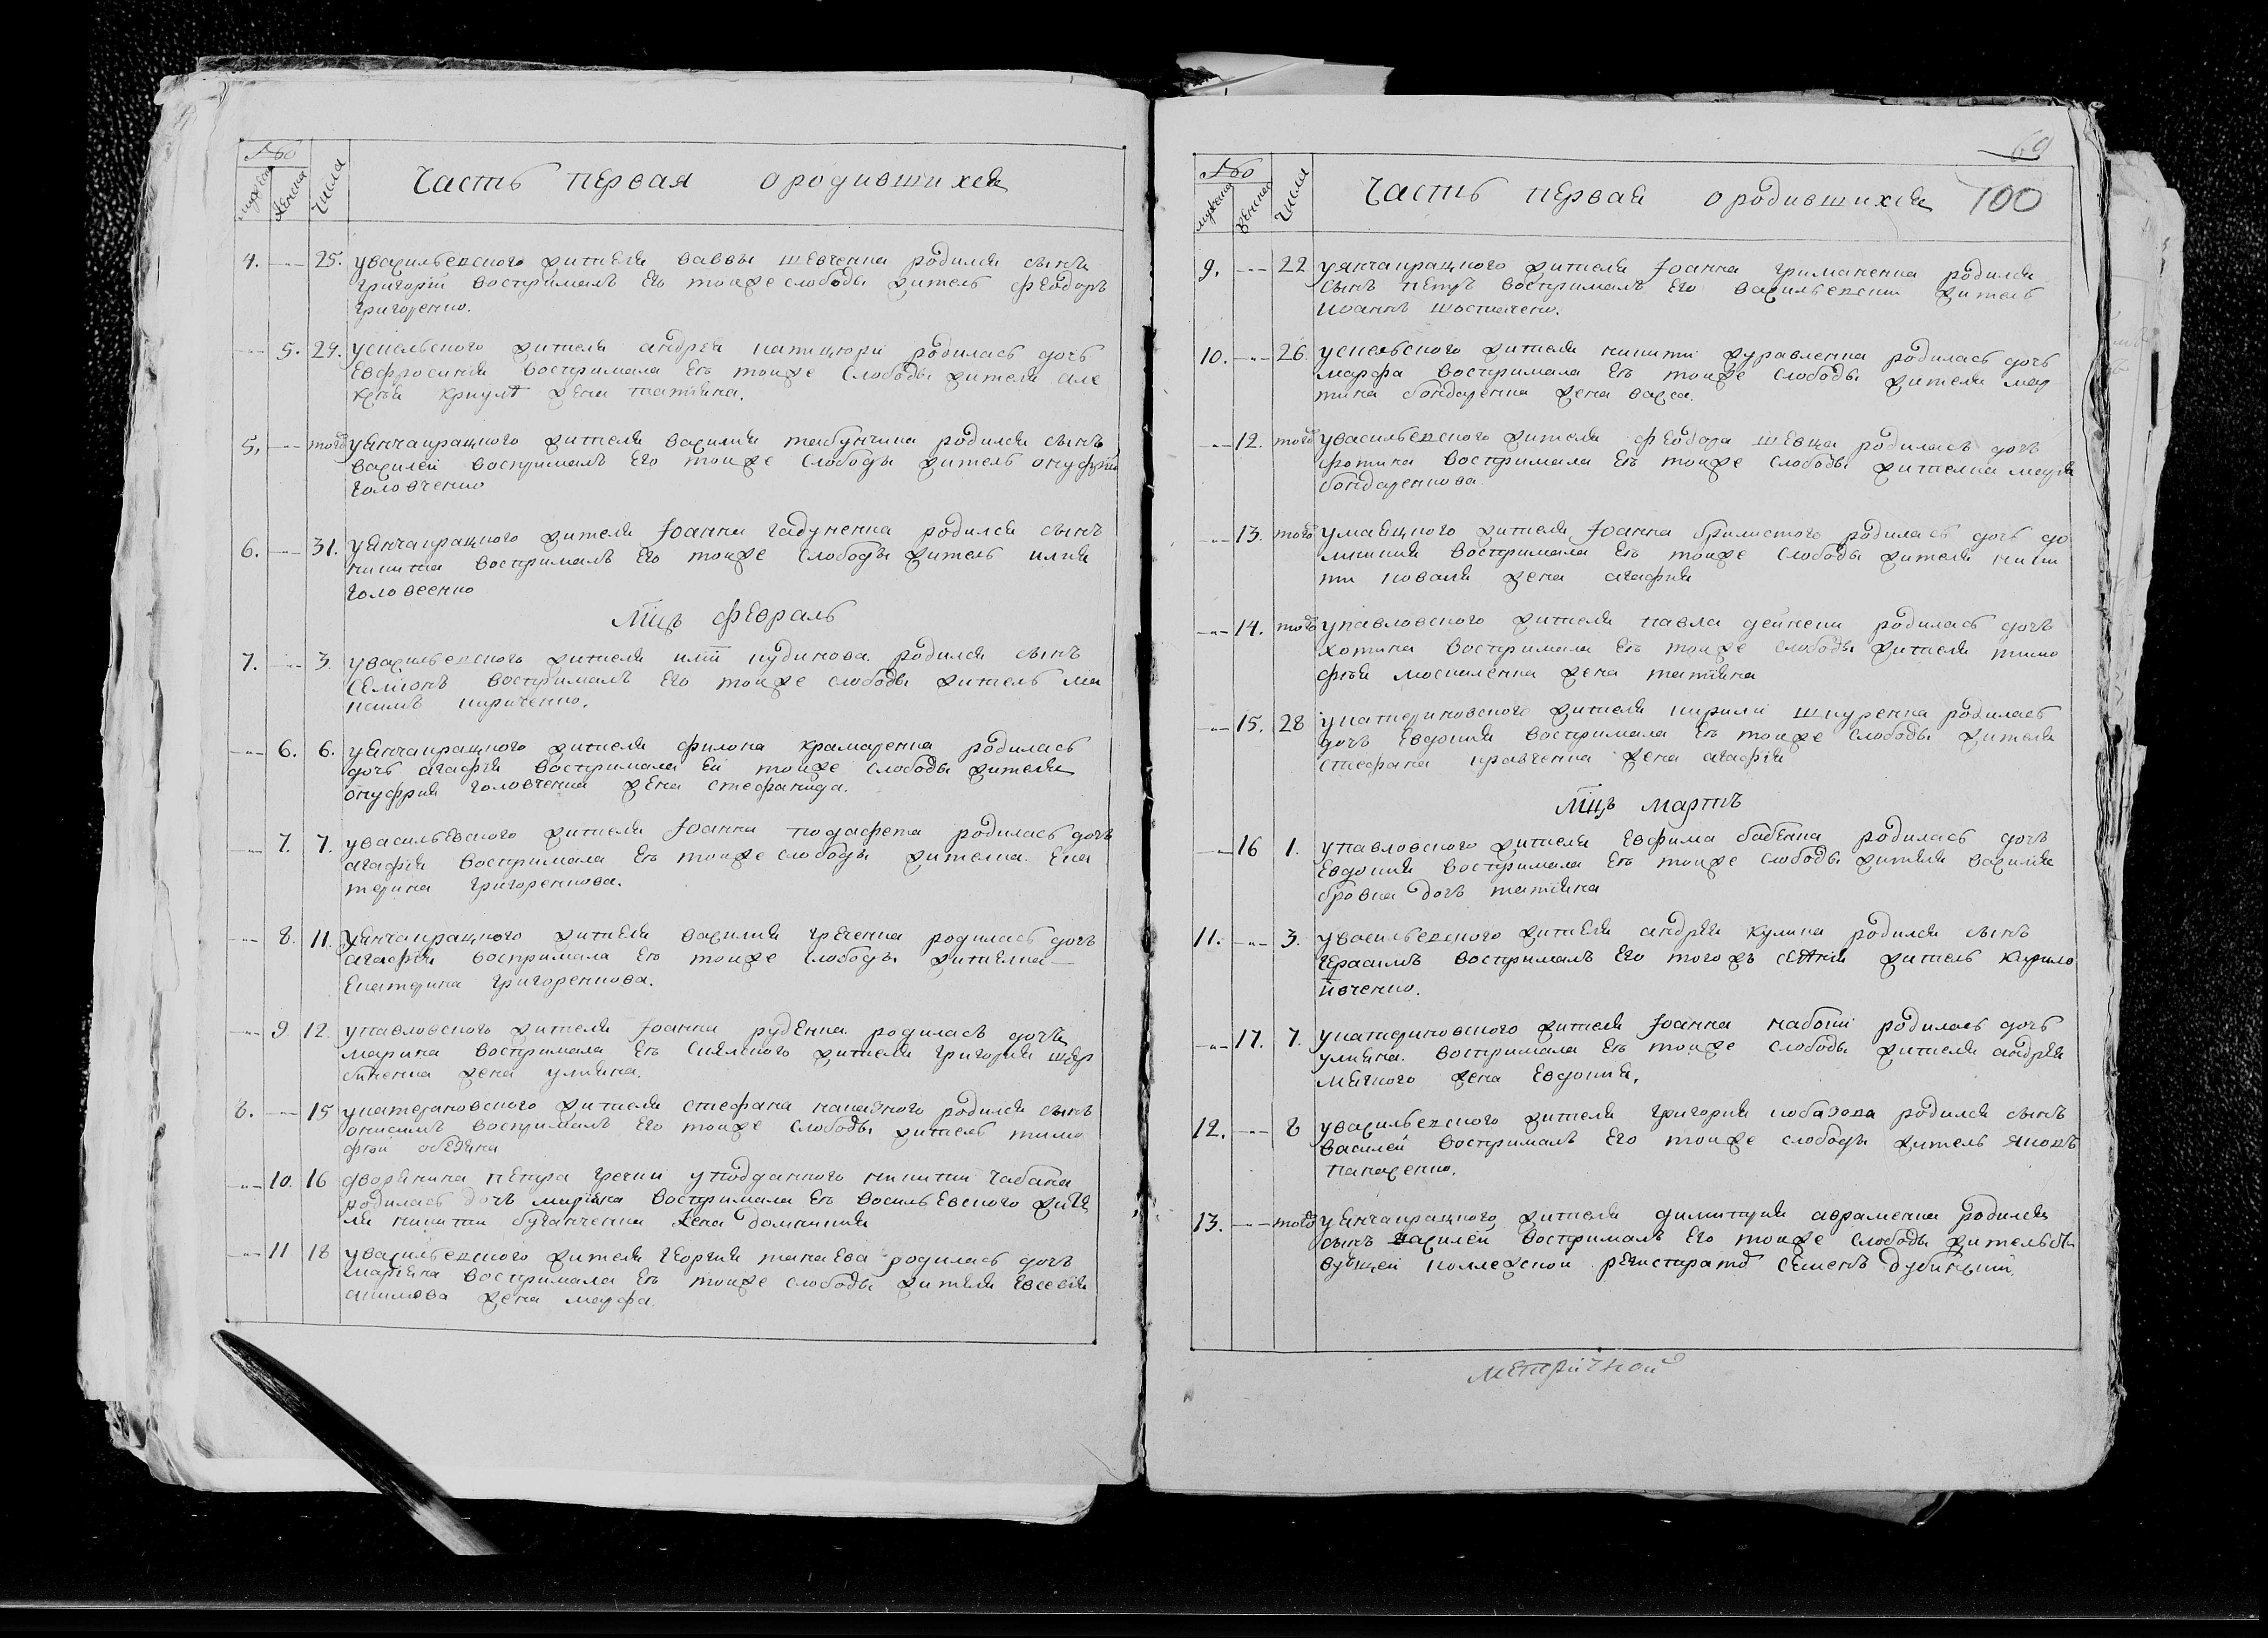 №
мужеска
женска
числа
Часть первая о родившихся
4. 25. увасильевского жителя саввы шевченка родился сынъ
григорій воспримаʌъ его тоиже слободы житель феодоръ
григоренко.
5. 29. жителя андрея родилась дочь
евфросинія воспримала еѣ тоиже слободы жителя але
жена татіяна.
5. того уянчакрацкого жителя василия табунчика родился сынъ
василей воспрималъ его тоиже слободы житель онуфрій
головченко
6. 31. уянчакрацкого жителя Іоанна гадуненка родился сынъ
никита воспрималъ его тоиже слободы житель илия
Мцъ февраль
7. 3. увасильевского жителя иліи кудинова родился сынъ
семіонъ воспрималъ его тоиже слободы житель ма
ксимъ кириченко.
6. 6. уянчакрацкого жителя филона крамаренка родилась
дочь агафія воспримала ей тоиже слободы жителя
онуфрия головченка жена стефанида.
7. 7. увасильевского жителя Іоанна родилась дочь
агафія воспримала еѣ тоиже слободы жителка ека
терина григоренкова.
8. 11. уянчакрацкого жителя василия греченка родилась дочь
агафія воспримала еѣ тоиже слободы жителка
екатерина григоренкова.
9 12. упавловского жителя Іоанна руденка родилась дочь
марина воспримала еѣ жителя григория щер
биненка жена улияна.
8. 15 укатериновского жителя стефана родился сынъ
онисимъ воспрималъ его тоиже слободы житель тимо
фей
10. 16 дворянина петра гречки уподданного никиты чабана
родилась дочь маріяна воспримала еѣ васильевского жите
ля никиты жена домникия
11 18 увасильевского жителя георгия танаева родилась дочь
воспримала еѣ тоиже слободы жителя евсевія
акимова жена марфа.
69
№
мужеска
женска
числа
Часть первая о родившихся 100
9. 22 уянчакрацкого жителя Іоанна гриманенка родился
сынъ петръ воспрималъ его васильевски житель
иоаннъ
10. 26. жителя никиты журавленка родилась дочь
марфа воспримала еѣ тоиже слободы жителя мар
тина бондаренка жена васса.
12. того увасильевского жителя феодора шевца родилась дочь
фотина воспримала еѣ тоиже слободы жителка марія
бондаренкова
13. того умаяцкого жителя Іоанна бралистого родилась дочь до
миния воспримала еѣ тоиже слободы жителя ники
ти коваля жена агафия
14. того упавловского жителя павла дейнеки родилась дочь
хотина воспримала еѣ тоиже слободы жителя тимо
фѣя москаленка жена татіяна
15. 28 укатериновского жителя кирилы шкуренка родилась
дочь евдокия воспримала еѣ тоиже слободы жителя
стефана кравченка жена агафія
Мцъ мартъ
16 1. упавловского жителя евфима бабенка родилась дочь
евдокия воспримала еѣ тоиже слободы жителя василия
бровка дочь татіяна
11. 3. увасильевского жителя андрея кулика родился сынъ
герасимъ воспрималъ его того жъ житель кирило
ивченко.
17. 7. укатериновского жителя Іоанна набоки родилась дочь
улияна воспримала еѣ тоиже слободы жителя андрея
мячного жена евдокия.
12. 8 увасильевского жителя григория кобазева родился сынъ
василей воспрималъ его тоиже слободы житель яковъ
панасенко.
13. того уянчакрацкого жителя димитрия авраменка родился
сынъ василей воспрималъ его тоиже слободы жительст
вующей коллежской регистраторъ семенъ
метричной